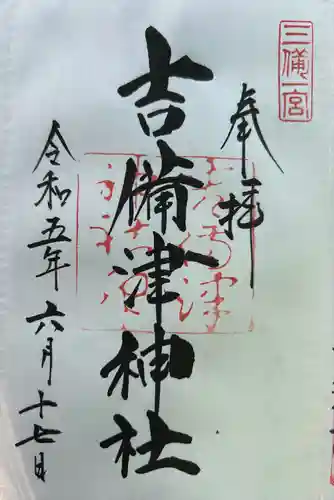 三備一宮
奉拝
吉備津神社
令和五年六月十七日